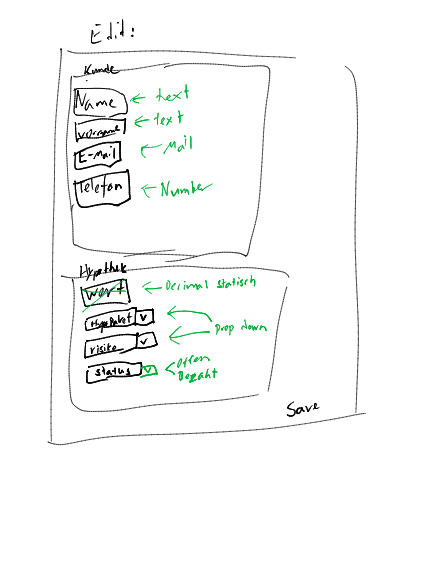 Edit:
Kunde
Name ← text
vorname ← text
E-Mail ← Mail
Telefon ← Number
Hypothek
wert ← Decimal statisch
Hypopaket v
← Drop down
risiko v
status v ← offen
Bezahlt
Save